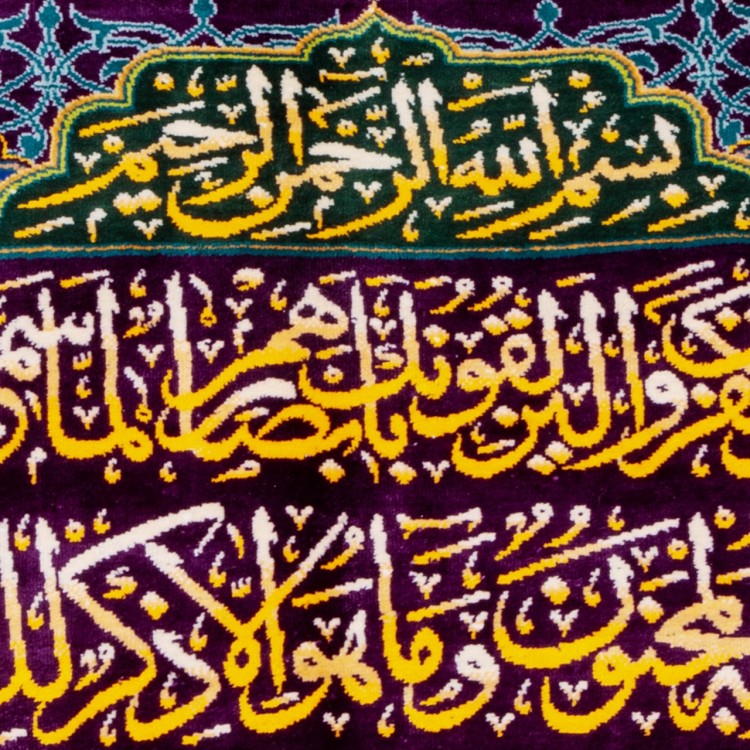 بِسْمِ اللَّهِ الرَّحْمَنِ الرَّحِيمِ
كفروا ليزلقونك بأبصارهم لما سم
لمجنون وما هو إلا ذكر لل